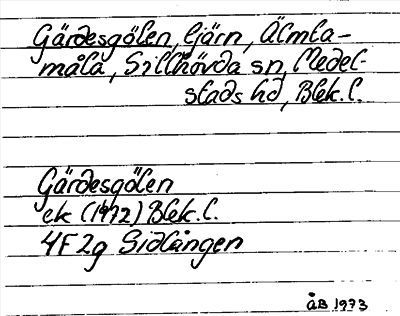 Gärdesgölen, tjärn, Älmta-
måla, Sillhövda sn, Medel-
stads hd, Blek. l.
Gärdesgölen
ek (1972) Blek. l.
4F2g Sidlången
ÅB 1973